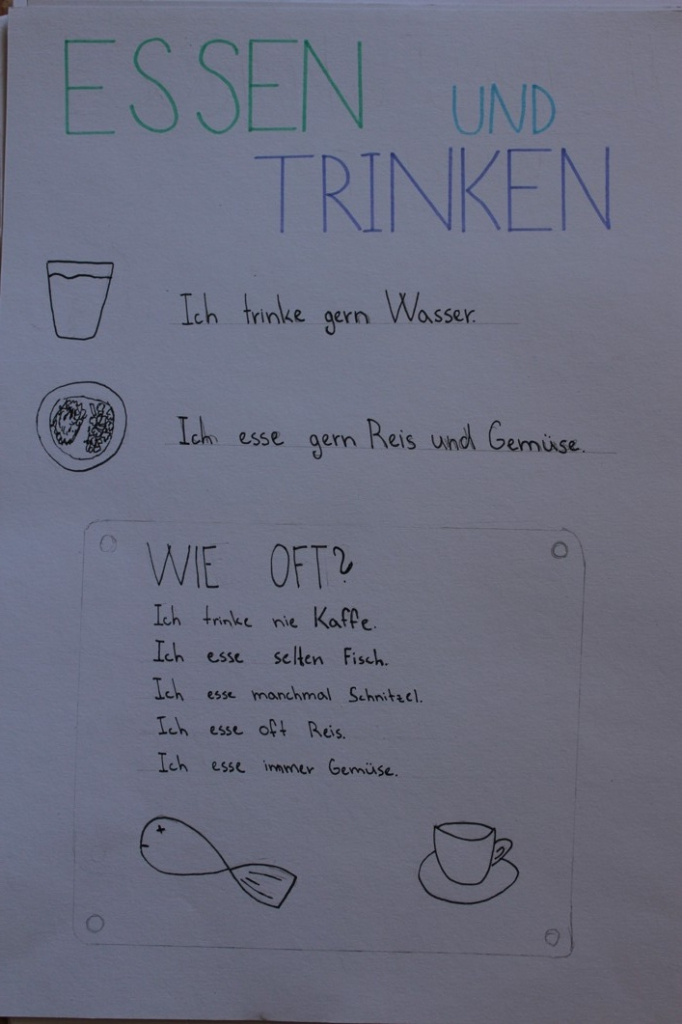 ESSEN UND
TRINKEN
Ich trinke gern Wasser.
Ich esse gern Reis und Gemüse.
WIE OFT?
Ich trinke nie Kaffe.
Ich esse selten Fisch.
Ich esse manchmal Schnitzel.
Ich esse oft Reis.
Ich esse immer Gemüse.